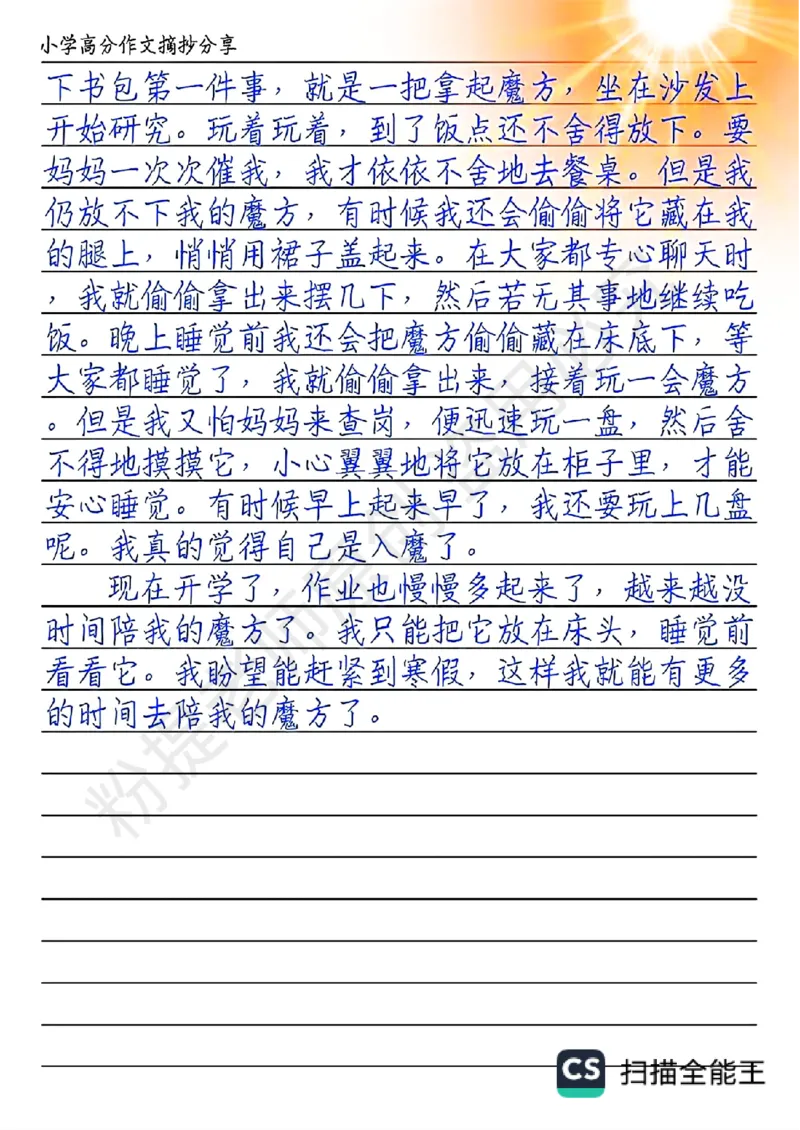 小学高分作文摘抄分享
下书包第一件事，就是一把拿起魔方，坐在沙发上
开始研究。玩着玩着，到了饭点还不舍得放下。要
妈妈一次次催我，我才依依不舍地去餐桌。但是我
仍放不下我的魔方，有时候我还会偷偷将它藏在我
的腿上，悄悄用裙子盖起来。在大家都专心聊天时
，我就偷偷拿出来摆几下，然后若无其事地继续吃
饭。晚上睡觉前我还会把魔方偷偷藏在床底下，等
大家都睡觉了，我就偷偷拿出来，接着玩一会魔方
。但是我又怕妈妈来查岗，便迅速玩一盘，然后舍
不得地摸摸它，小心翼翼地将它放在柜子里，才能
安心睡觉。有时候早上起来早了，我还要玩上几盘
呢。我真的觉得自己是入魔了。
现在开学了，作业也慢慢多起来了，越来越没
时间陪我的魔方了。我只能把它放在床头，睡觉前
看看它。我盼望能赶紧到寒假，这样我就能有更多
的时间去陪我的魔方了。
CS 扫描全能王